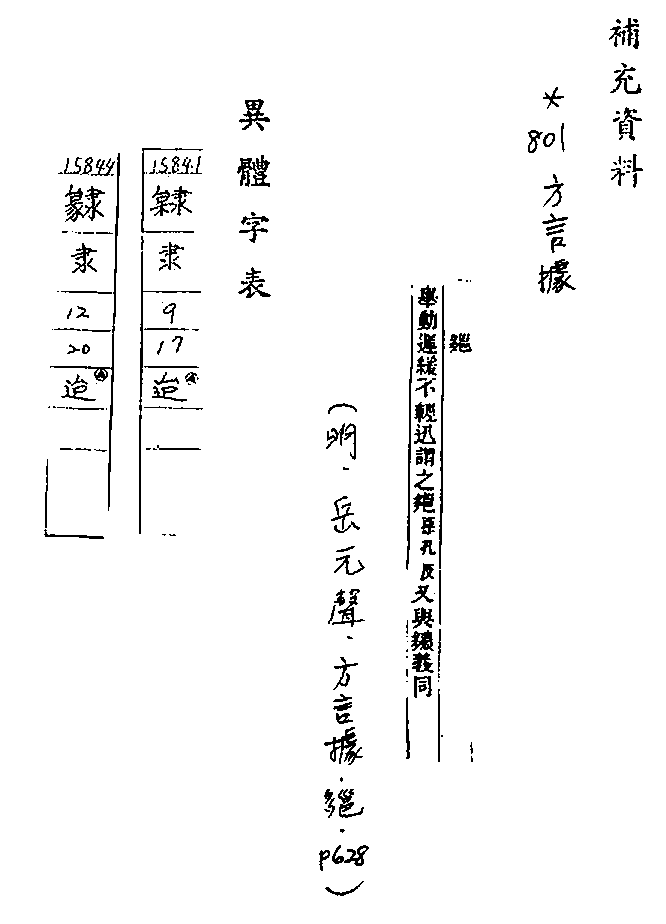 補充資料
*801 方言據
舉動遲緩不輕迅謂之 孔反又與 義同
(明．岳元聲．方言據．．p628)
異體字表
15841
隶
9
17
迨
15844
隶
12
20
迨